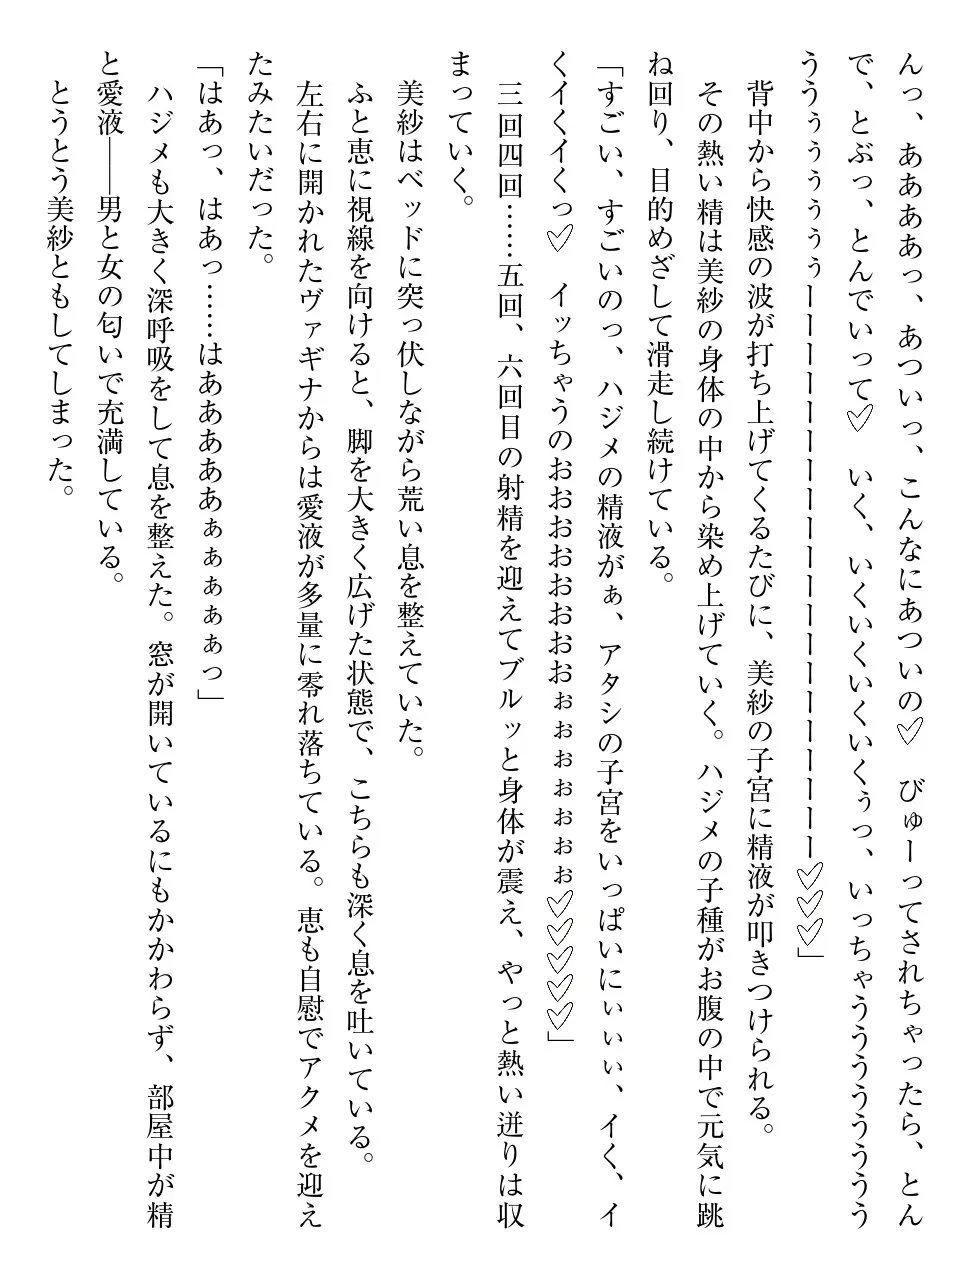 んっ、ああああっ、あついっ、こんなにあついの♡　びゅーってされちゃったら、とん
で、とぶっ、とんでいって♡　いく、いくいくいくいくぅっ、いっちゃうううううううう
ううぅぅぅぅぅぅーーーーーーーーーーーーーーーーーーーー♡♡♡」
　背中から快感の波が打ち上げてくるたびに、美紗の子宮に精液が叩きつけられる。
　その熱い精は美紗の身体の中から染め上げていく。ハジメの子種がお腹の中で元気に跳
ね回り、目的めざして滑走し続けている。
「すごい、すごいのっ、ハジメの精液がぁ、アタシの子宮をいっぱいにぃぃぃ、イく、イ
くイくイくっ♡　イッちゃうのおおおおおおおおぉぉぉぉぉぉぉ♡♡♡♡♡」
　三回四回……五回、六回目の射精を迎えてブルッと身体が震え、やっと熱い迸りは収
まっていく。
　美紗はベッドに突っ伏しながら荒い息を整えていた。
　ふと恵に視線を向けると、脚を大きく広げた状態で、こちらも深く息を吐いている。
　左右に開かれたヴァギナからは愛液が多量に零れ落ちている。恵も自慰でアクメを迎え
たみたいだった。
「はあっ、はあっ……はああああああぁぁぁぁぁっ」
　ハジメも大きく深呼吸をして息を整えた。窓が開いているにもかかわらず、部屋中が精
と愛液――男と女の匂いで充満している。
　とうとう美紗ともしてしまった。